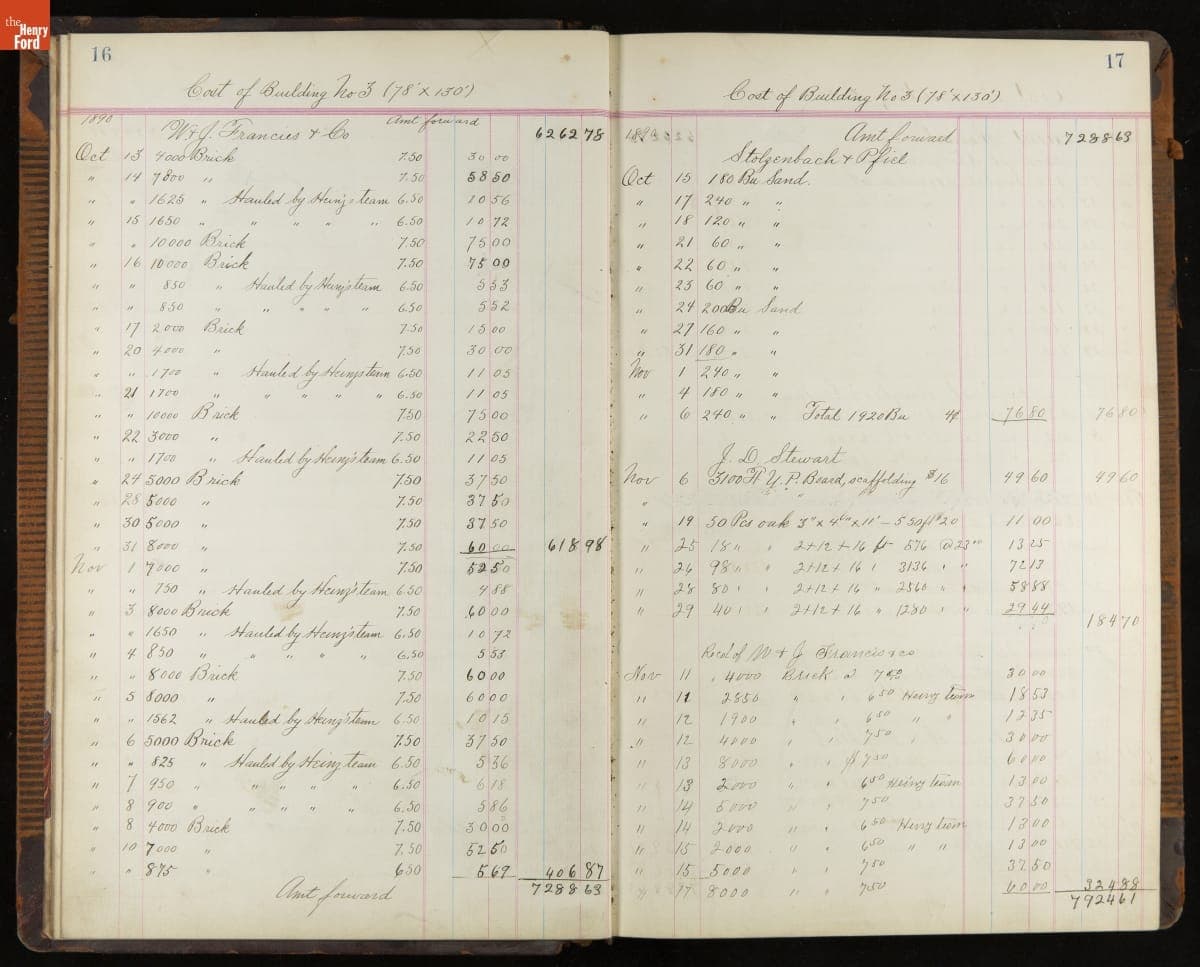 the Henry Ford
16
Cost of Building No 3 (78' x 130')
1890 W & J. Francies & Co Amt forward 6262 78
Oct 13 4000 Brick 7.50 30 00
" 14 7800 " 7.50 58 50
" " 1625 " Hauled by Heinz's team 6.50 10 56
" 15 1650 " " " " " 6.50 10 72
" " 10000 Brick 7.50 75 00
" 16 10000 Brick 7.50 75 00
" " 850 " Hauled by Heinz's team 6.50 5 53
" " 850 " " " " " 6.50 5 52
" 17 2000 Brick 7.50 15 00
" 20 4000 " 7.50 30 00
" " 1700 " Hauled by Heinz's team 6.50 11 05
" 21 1700 " " " " " 6.50 11 05
" " 10000 Brick 7.50 75 00
" 22 3000 " 7.50 22 50
" " 1700 " Hauled by Heinz's team 6.50 11 05
" 24 5000 Brick 7.50 37 50
" 28 5000 " 7.50 37 50
" 30 5000 " 7.50 37 50
" 31 8000 " 7.50 60 00 618 98
Nov 1 7000 " 7.50 52 50
" " 750 " Hauled by Heinz's team 6.50 4 88
" 3 8000 Brick 7.50 60 00
" " 1650 " Hauled by Heinz's team 6.50 10 72
" 4 850 " " " " " 6.50 5 53
" " 8000 Brick 7.50 60 00
" 5 8000 " 7.50 60 00
" " 1562 " Hauled by Heinz's team 6.50 10 15
" 6 5000 Brick 7.50 37 50
" " 825 " Hauled by Heinz team 6.50 5 36
" 7 950 " " " " " 6.50 6 18
" 8 900 " " " " " 6.50 5 86
" 8 4000 Brick 7.50 30 00
" 10 7000 " 7.50 52 50
" " 875 " 6 50 5 69 406 87
Amt forward 7288 63
17
Cost of Building No 3 (78' x 130')
Amt forward 7288 63
Stolzenbach & Pfiel
Oct 15 180 Bu Sand.
" 17 240 " "
" 18 120 " "
" 21 60 " "
" 22 60 " "
" 23 60 " "
" 24 200 Bu Sand
" 27 160 " "
" 31 180 " "
Nov 1 240 " "
" 4 180 " "
" 6 240 " " Total 1920 Bu 4¢ 76 80 76 80
J. D. Stewart
Nov 6 3100 ft Y. P. Board, scaffolding $16 49 60 49 60
"
" 19 50 Pcs oak 3" x 4" x 11' - 550 ft $20 11 00
" 25 18 " " 2 + 12 + 16 ft 576 @ 23 00 13 25
" 26 98 " " 2 + 12 + 16 " 3136 " " 72 13
" 28 80 " " 2 + 12 + 16 " 2560 " " 58 88
" 29 40 " " 2 + 12 + 16 " 1280 " " 29 44
184 70
Recd of W & J Francis & Co
Nov 11 " 4000 Brick @ 7 50 30 00
" 11 2850 " " 6 50 Heinz team 18 53
" 12 1900 " " 6 50 " " 12 35
" 12 4000 " " 7 50 30 00
" 13 8000 " " $7 50 60 00
" 13 2000 " " 6 50 Heinz team 13 00
" 14 5000 " " 7 50 37 50
" 14 2000 " " 6 50 Heinz team 13 00
" 15 2000 " " 6 50 " " 13 00
" 15 5000 " " 7 50 37 50
" 17 8000 " " 7 50 60 00 324 88
7924 61